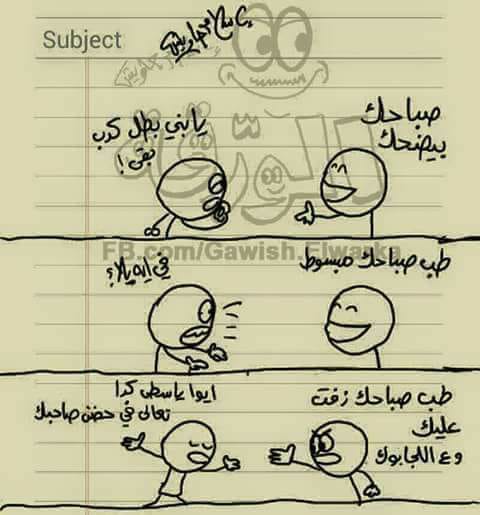 Subject
إسلام جاويش
الورقة
صباحك
بيضحك
يا بني بطل كدب
بقى !
FB.com/Gawish.Elwarka
طب صباحك مبسوط
في إيه يالا ؟
طب صباحك زفت
عليك
وع اللجابوك
ايوا ياسطى كدا
تعالى في حضن صاحبك